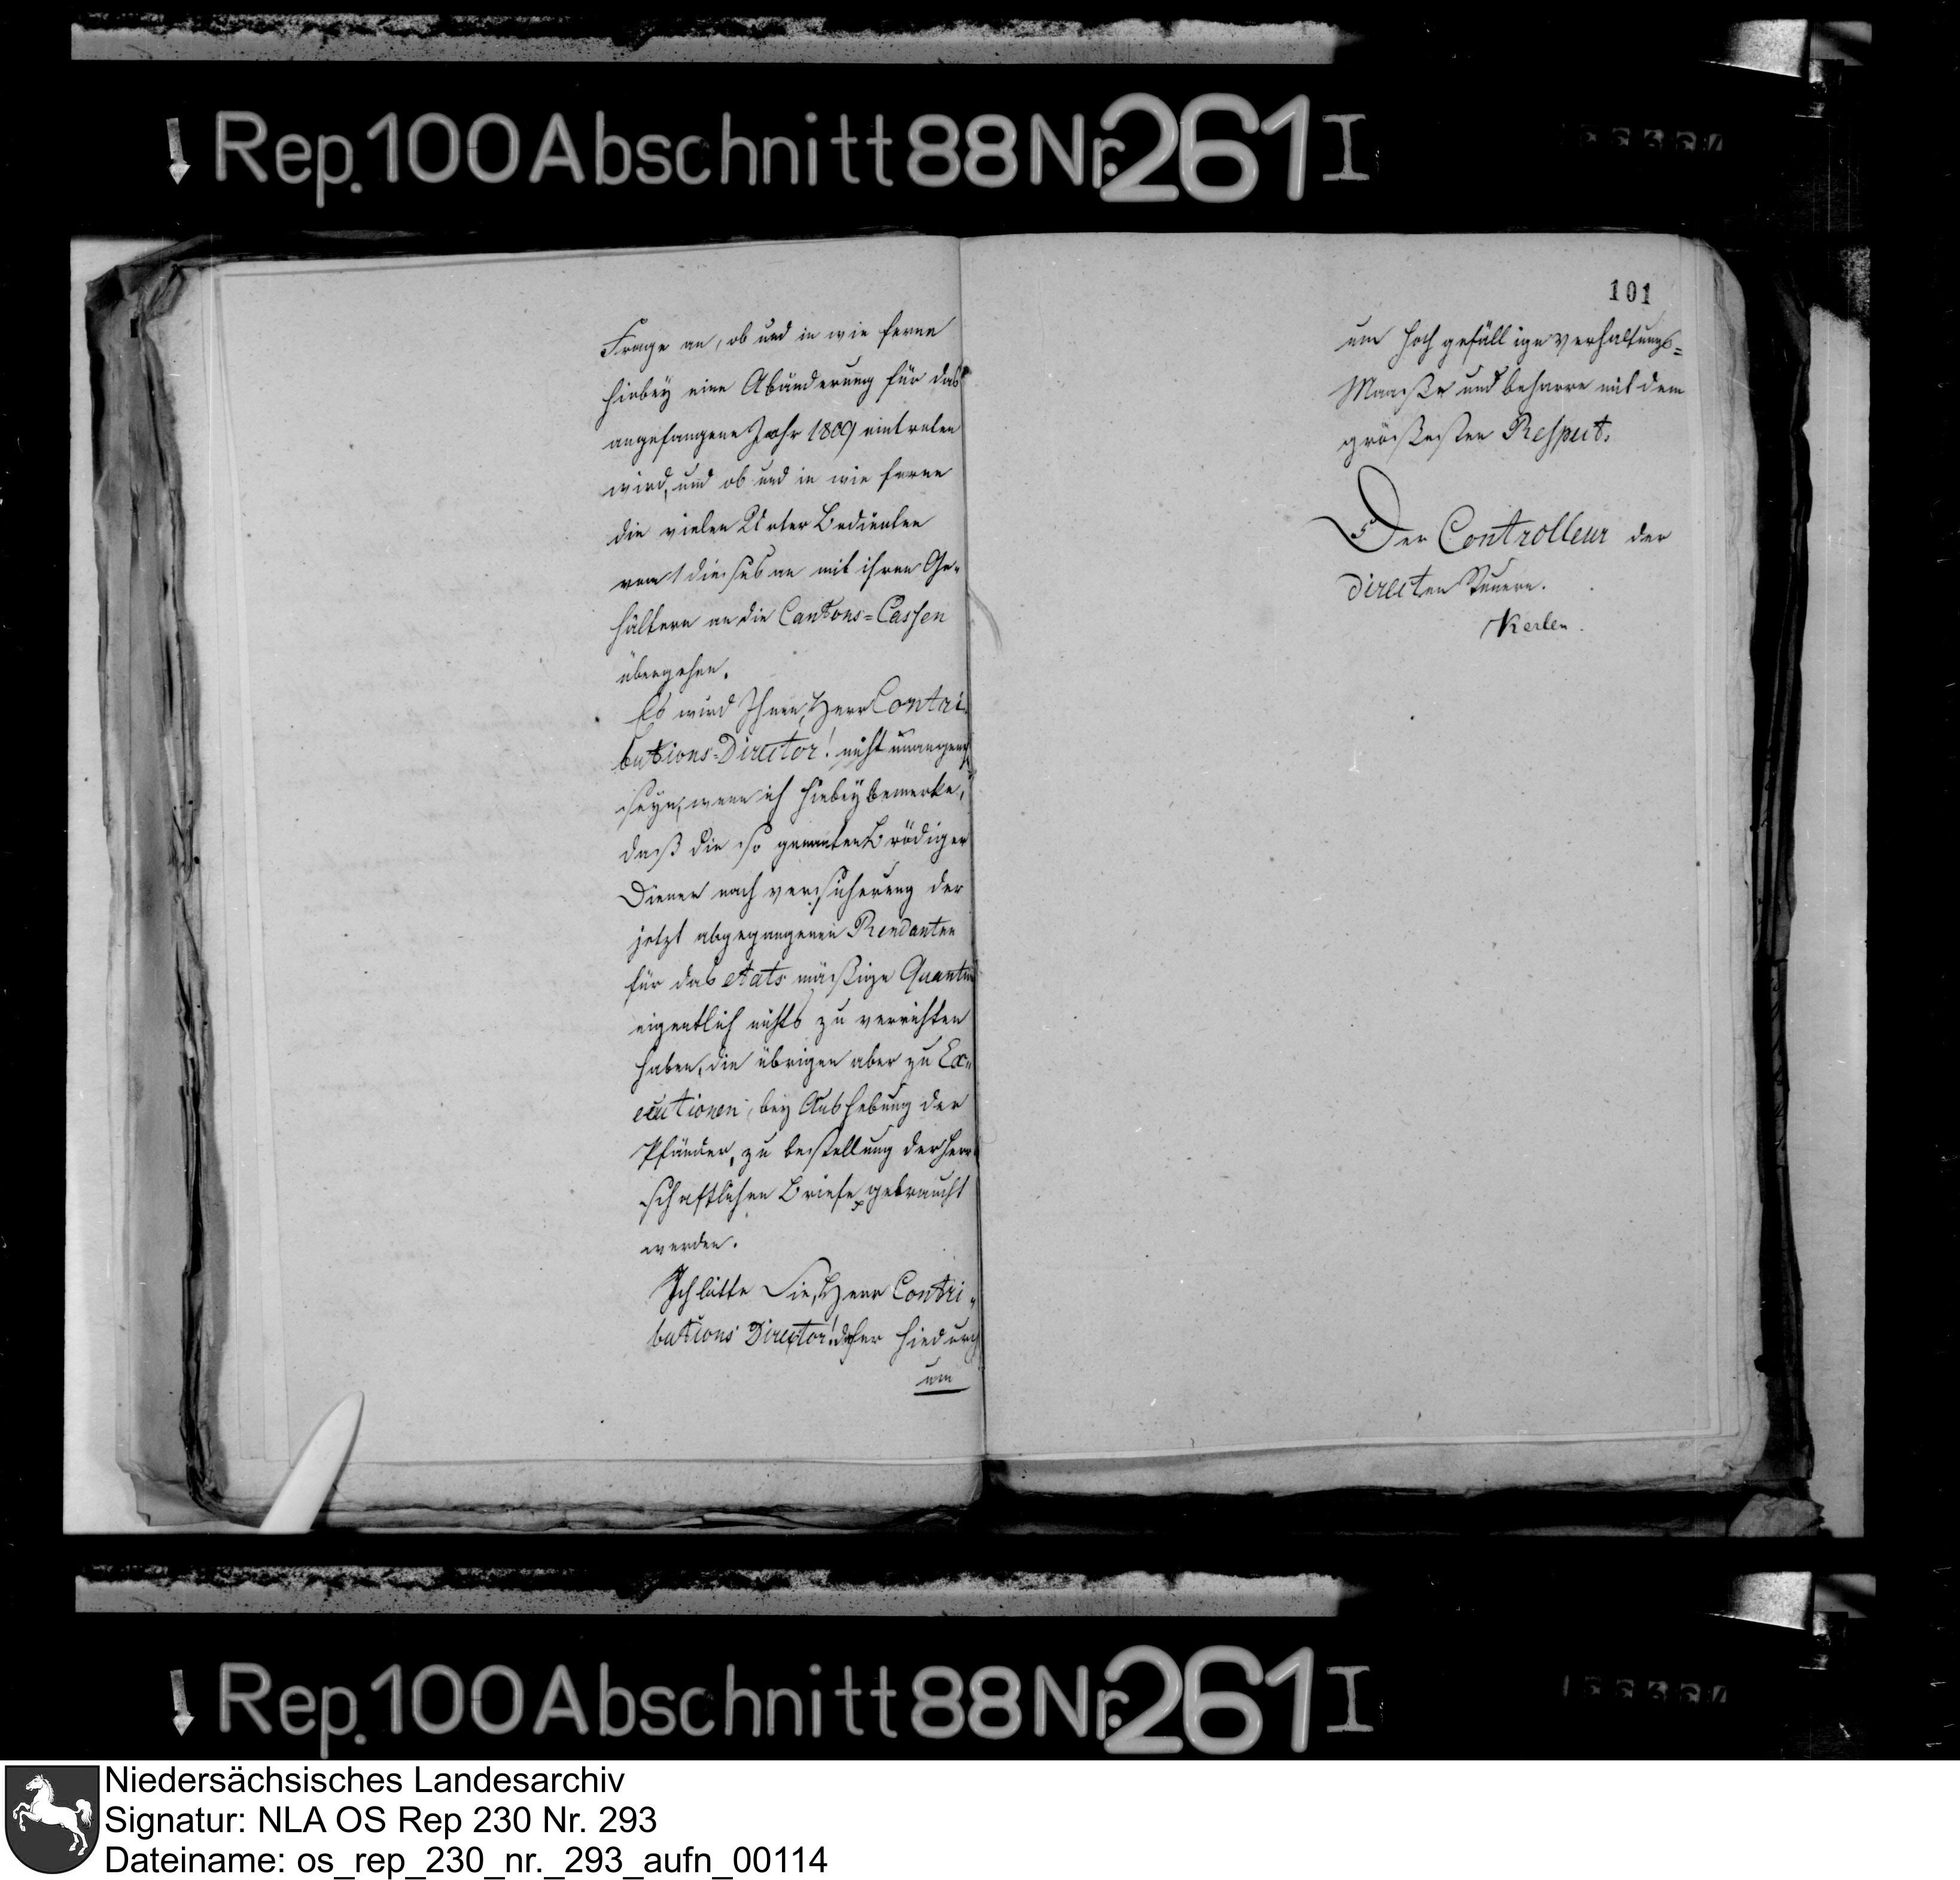 Rep. 100 Abschnitt 88 Nr. 261 I
Frage an, ob und in wie ferne
hiebey eine Abänderung für das
angefangene Jahr 1809 eintreten
wird, und ob und in wie ferne
die vielen Unter Bedienten
vom 1 dieses an mit ihren Ge-
hältern an die Cantons-Cassen
übergehen.
Es wird Ihnen, Herr Contri-
butions-Director! nicht unangenehm
seyn, wenn ich hiebey bemerke,
daß die so genanten Brödiger
Diener nach versicherung der
jetzt abgegangenen Rendanten
für das etats mäßige Quantum
eigentlich nichts zu verrichten
haben, die übrigen aber zu Ex-
ecutionen, bey Aushebung der
Pfänder, zu bestellung der herr-
schaftlichen Briefe gebraucht
werden.
Ich bitte Sie, Herr Contri-
butions Director! daher hiedurch
um
101
um hoch gefällige verhaltungs-
Maaße und beharre mit dem
größesten Respect.
Der Controlleur der
directen Steuern.
Kerlen.
Rep. 100 Abschnitt 88 Nr. 261 I
Niedersächsisches Landesarchiv
Signatur: NLA OS Rep 230 Nr. 293
Dateiname: os_rep_230_nr._293_aufn_00114